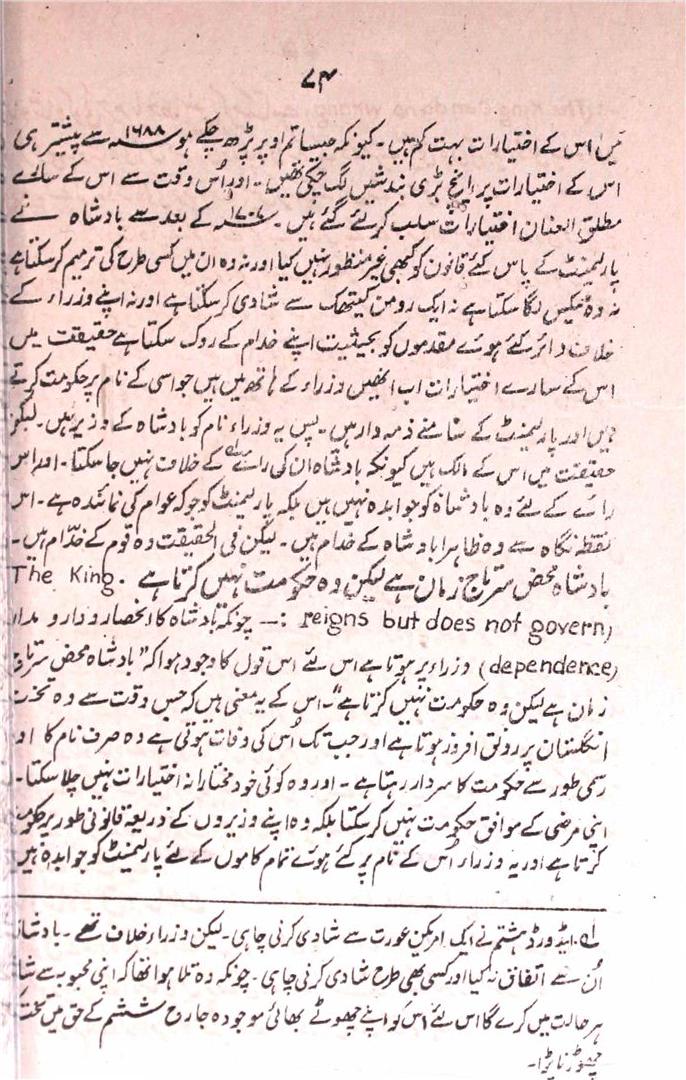 ۷۴
میں اس کے اختیارات بہت کم ہیں ۔ کیونکہ جیسا تم اوپر پڑھ چکے ہو ۱۶۸۸ سے پیشتر ہی
اس کے اختیارات پر پانچ بڑی بندشیں لگ چکی تھیں ۔ اور اُس وقت سے اس کے سارے
مطلق العنان اختیارات سلب کر لئے گئے ہیں ۔ ۱۷۰۷ کے بعد سے بادشاہ نے
پارلیمنٹ کے پاس کئے قانون کو کبھی غیر منظور نہیں کیا اور نہ وہ ان میں کسی طرح کی ترمیم کر سکتا ہے
نہ وہ ٹیکس لگا سکتا ہے نہ ایک رومن کیتھک سے شادی کر سکتا ہے اور نہ اپنے وزراء کے
خلاف دائر کئے ہوئے مقدموں کو بحیثیت اپنے خدام کے روک سکتا ہے حقیقت میں
اس کے سارے اختیارات اب انھیں وزراء کے ہاتھ میں ہیں جو اسی کے نام پر حکومت کرتے
ہیں اور پارلیمنٹ کے سامنے ذمہ دار ہیں ۔ پس یہ وزراء نام کو بادشاہ کے وزیر ہیں ۔ لیکن
حقیقت میں اس کے مالک ہیں کیونکہ بادشاہ ان کی رائے کے خلاف نہیں جا سکتا ۔ اور اس
رائے کے لئے وہ بادشاہ کو جوابدہ نہیں ہیں بلکہ پارلیمنٹ کو جو کہ عوام کی نمائندہ ہے ۔ اس
نقطہ نگاہ سے وہ ظاہرا بادشاہ کے خدام ہیں ۔ لیکن فی الحقیقت وہ قوم کے خدّام ہیں ۔
بادشاہ محض سرتاج زمان ہے لیکن وہ حکومت نہیں کرتا ہے . The King
reigns but does not govern) :— چونکہ بادشاہ کا انحصار و دار و مدار
(dependence) وزراء پر ہوتا ہے اس لئے اس قول کا وجود ہوا کہ "بادشاہ محض سرتاج
زمان ہے لیکن وہ حکومت نہیں کرتا ہے" ۔ اس کے یہ معنی ہیں کہ جس وقت سے وہ تخت
انگلستان پر رونق افروز ہوتا ہے اور جب تک اُس کی وفات ہوتی ہے وہ صرف نام کا اور
رسمی طور سے حکومت کا سردار رہتا ہے ۔ اور وہ کوئی خود مختارانہ اختیارات نہیں چلا سکتا ۔
اپنی مرضی کے موافق حکومت نہیں کر سکتا بلکہ وہ اپنے وزیروں کے ذریعہ قانونی طور پر حکومت
کرتا ہے اور یہ وزراء اُس کے نام پر کئے ہوئے تمام کاموں کے لئے پارلیمنٹ کو جوابدہ ہیں
۱؎ ۔ ایڈورڈ ہشتم نے ایک امریکن عورت سے شادی کرنی چاہی ۔ لیکن وزراء خلاف تھے ۔ بادشاہ
اُن سے اتفاق نہ کیا اور کسی بھی طرح شادی کرنی چاہی ۔ چونکہ وہ تلا ہوا تھا کہ اپنی محبوبہ سے
ہر حالت میں کرے گا اس لئے اس کو اپنے چھوٹے بھائی موجودہ جارج ششم کے حق میں تخت
چھوڑنا پڑا ۔